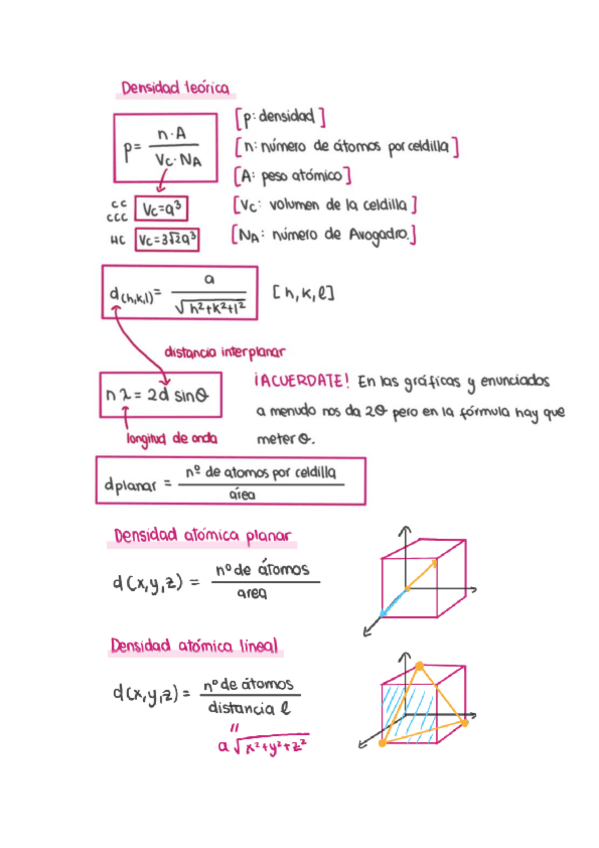 Densidad teórica
p = n·A / Vc·NA
[p: densidad]
[n: número de átomos por celdilla]
[A: peso atómico]
CC
CCC
Vc=a³
[Vc: volumen de la celdilla]
HC
Vc=3√2a³
[NA: número de Avogadro.]
d(h,k,l) = a / √h²+k²+l²
[h,k,l]
distancia interplanar
nλ = 2d sinθ
longitud de onda
¡ACUERDATE! En las gráficas y enunciados
a menudo nos da 2θ pero en la fórmula hay que
meter θ.
dplanar = nº de atomos por celdilla / área
Densidad atómica planar
d(x,y,z) = nº de átomos / area
Densidad atómica lineal
d(x,y,z) = nº de átomos / distancia l
"
a√x²+y²+z²